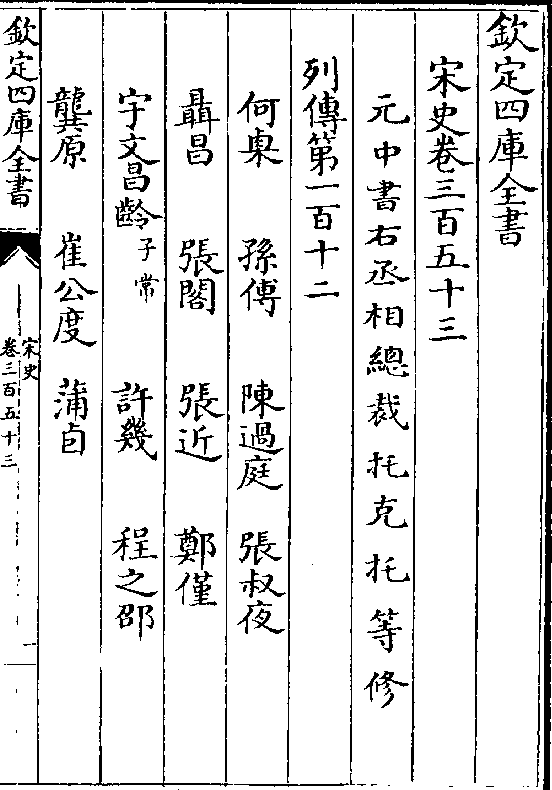 欽定四庫全書
宋史卷三百五十三
元中書右丞相總裁托克托等修
列傳第一百十二
何㮚 孫傅 陳過庭 張叔夜
聶昌 張閣 張近 鄭僅
宇文昌齡子常 許幾 程之邵
龔原 崔公度 蒲卣
欽定四庫全書
宋史
卷三百五十三
一